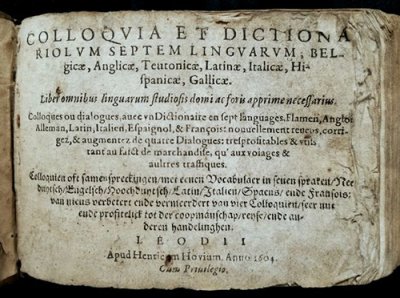 COLLOQVIA ET DICTIONA
RIOLVM SEPTEM LINGVARVM, BEL-
gicæ, Anglicæ, Teutonicæ, Latinæ, Italicæ, Hi-
spanicæ, Gallicæ.
Liber omnibus linguarum studiosis domi ac foris apprime necessarius.
Colloques ou dialogues, auec vn Dictionaire en sept languages, Flamen, Anglois
Alleman, Latin, Italien, Espaignol, & François: nouuellement reueus, corri-
gez, & augmentez de quatre Dialogues: tresprofitables & vtils
tant au faict de marchandise, qu'aux voiages &
aultres traffiques.
Colloquien oft samensprekingen, met eenen Vocabulaer in seuen spraken, Nee
duytsch, Engelsch, Hoochduytsch, Latin, Italien, Spaens, ende Fransois:
van nieus verbetert ende vermeerdert van vier Colloquien, seer nut
ende profitelijt tot der coopmanschap, reyse, ende an-
deren handelinghen.
LEODII
Apud Henricum Hovium. Anno 1604.
Cum Priuilegio.